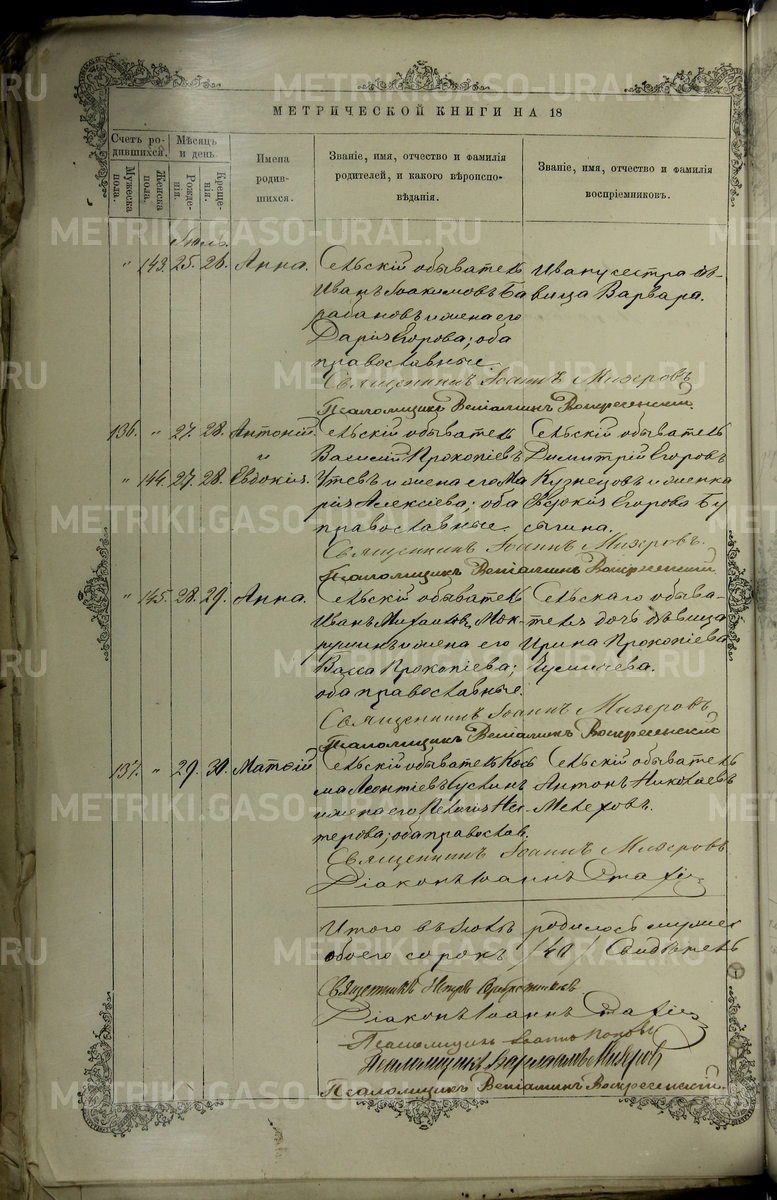 МЕТРИЧЕСКОЙ КНИГИ НА 18
Счетъ ро-
дившихся.
Мѣсяцъ
и день.
Мужеска
пола.
Женска
пола.
Рожде-
нія.
Креще-
нія.
Имена
родив-
шихся.
Званіе, имя, отчество и фамилія
родителей, и какого вѣроиспо-
вѣданія.
Званіе, имя, отчество и фамилія
воспріемниковъ.
Іюль.
" 143. 25. 26. Анна. Сельскій обыватель
Иванъ Іоакимовъ Ба
рабановъ и жена его
Дарія Егорова; оба
православные.
Ивану сестра дѣ-
вица Варвара.
Священникъ Іоаннъ Мизеровъ
Псаломщикъ Веніаминъ Воскресенскій.
136. " 27. 28. Антоній.
и
" 144. 27. 28. Евдокія.
Сельскій обыватель
Василій Прокопіевъ
и жена его Ма
рія Алексіева; оба
православные.
Сельскій обыватель
Димитрій Егоровъ
Кузнецовъ и женка
Евдокія Егорова Бу
сыгина.
Священникъ Іоаннъ Мизеровъ.
Псаломщикъ Веніаминъ Воскресенскій
" 145. 28. 29. Анна. Сельскій обыватель
Иванъ Михаиловъ Мок-
рушинъ и жена его
Васса Прокопіева;
оба православные.
Сельскаго обыва-
теля дочь дѣвица
Ирина Прокопіева
Священникъ Іоаннъ Мизеровъ
Псаломщикъ Веніаминъ Воскресенскій
137. " 29. 30. Матѳій Сельскій обыватель Кос
ма Леонтіевъ
и жена его Пелагія Нес-
терова; оба правосл.
Сельскій обыватель
Антонъ Николаевъ
Мелеховъ.
Священникъ Іоаннъ Мизеровъ
Діаконъ Іоаннъ
Итого въ Іюлѣ родилось
обоего сорокъ /40/
Священникъ Петръ
Діаконъ Іоаннъ
Псаломщикъ Іоаннъ Поповъ
Псаломщикъ Варлаамъ Мизеровъ
Псаломщикъ Веніаминъ Воскресенскій.
METRIKI.GASO-URAL.RU